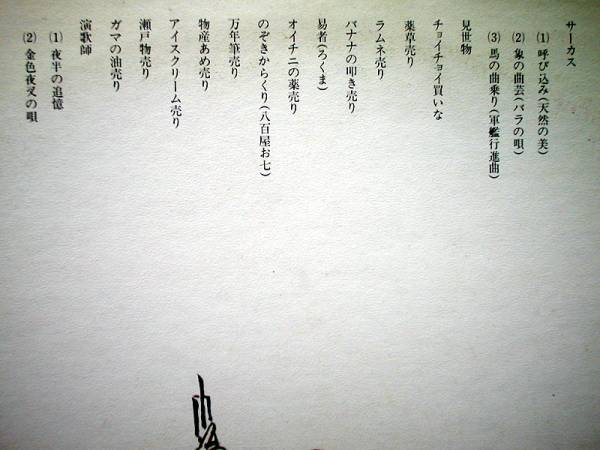 サーカス
(1) 呼び込み(天然の美)
(2) 象の曲芸(バラの唄)
(3) 馬の曲乗り(軍艦行進曲)
見世物
チョイチョイ買いな
薬草売り
ラムネ売り
バナナの叩き売り
易者(ろくま)
オイチニの薬売り
のぞきからくり(八百屋お七)
万年筆売り
物産あめ売り
アイスクリーム売り
瀬戸物売り
ガマの油売り
演歌師
(1) 夜半の追憶
(2) 金色夜叉の唄